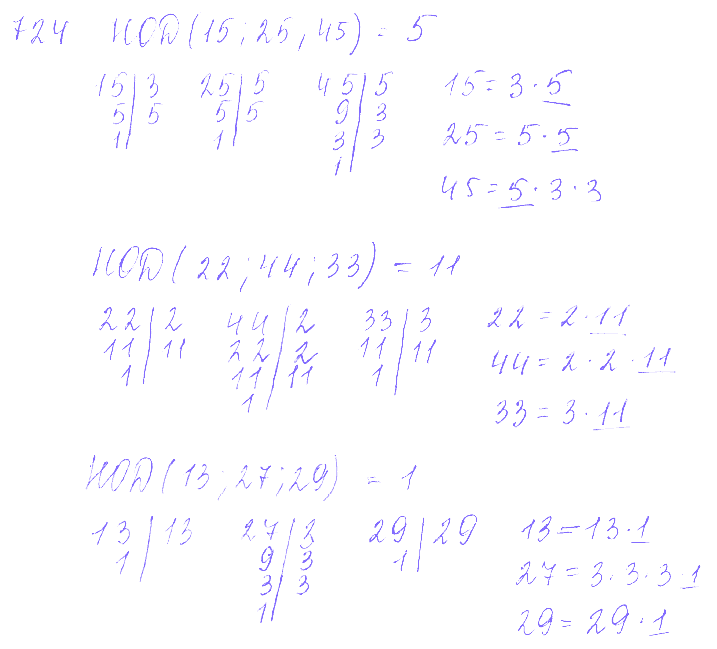 724 НОД(15;25,45) = 5
15|3 25|5 45|5 15=3·5
5|5 5|5 9|3 25=5·5
1| 1| 3|3
1| 45=5·3·3
НОД(22;44;33) = 11
22|2 44|2 33|3 22=2·11
11|11 22|2 11|11 44=2·2·11
1| 11|11 1|
1| 33=3·11
НОД(13;27;29) = 1
13|13 27|2 29|29 13=13·1
1| 9|3 1| 27=3·3·3·1
3|3
1| 29=29·1